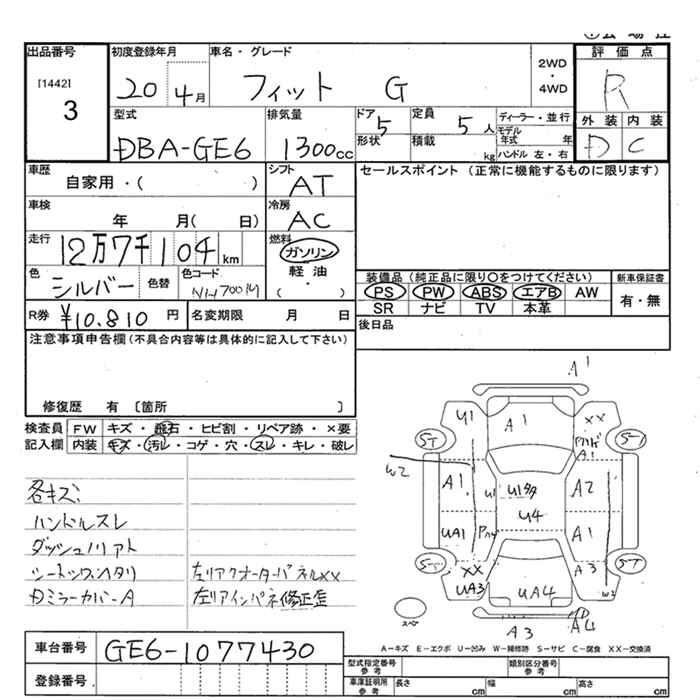 出品番号 初度登録年月 車名・グレード 評価点
[1442] 3
20 4月 フィット G 2WD・4WD R
型式 排気量 ドア 定員 ディーラー・並行 外装 内装
DBA-GE6 1300cc 5 5人 モデル年式 年 D C
形状 積載 kg ハンドル 左・右
車歴 シフト セールスポイント (正常に機能するものに限ります)
自家用・( ) AT
車検 冷房
年 月( 日) AC
走行 燃料
12万7千104km ガソリン
色 色替 色コード 軽油
シルバー ・( )
装備品(純正品に限り○をつけてください) 新車保証書
PS PW ABS エアB AW 有・無
SR ナビ TV 本革
R券 ¥10.810 円 名変期限 月 日 後日品
注意事項申告欄(不具合内容等は具体的に記入して下さい)
修復歴 有 〔箇所 〕
検査員 FW キズ・飛石・ヒビ割・リペア跡・×要
記入欄 内装 キズ・汚レ・コゲ・穴・スレ・キレ・破レ
各キズ
ハンドルスレ
左リアクオーターパネルXX
左リアインパネ修正歪
A1
U1 A1 XX
ST ST
A1
W2 A1 U1 U1多 A2
U4
UA1 A1
ST XX A3 ST
UA3 UA4 W2
スペア A3 A4
A-キズ E-エクボ U-凹み W-補修跡 S-サビ C-腐食 XX-交換済
車台番号 GE6-1077430
登録番号
型式指定番号 参考 類別区分番号 参考
車庫証明用 参考 長さ cm 幅 cm 高さ cm